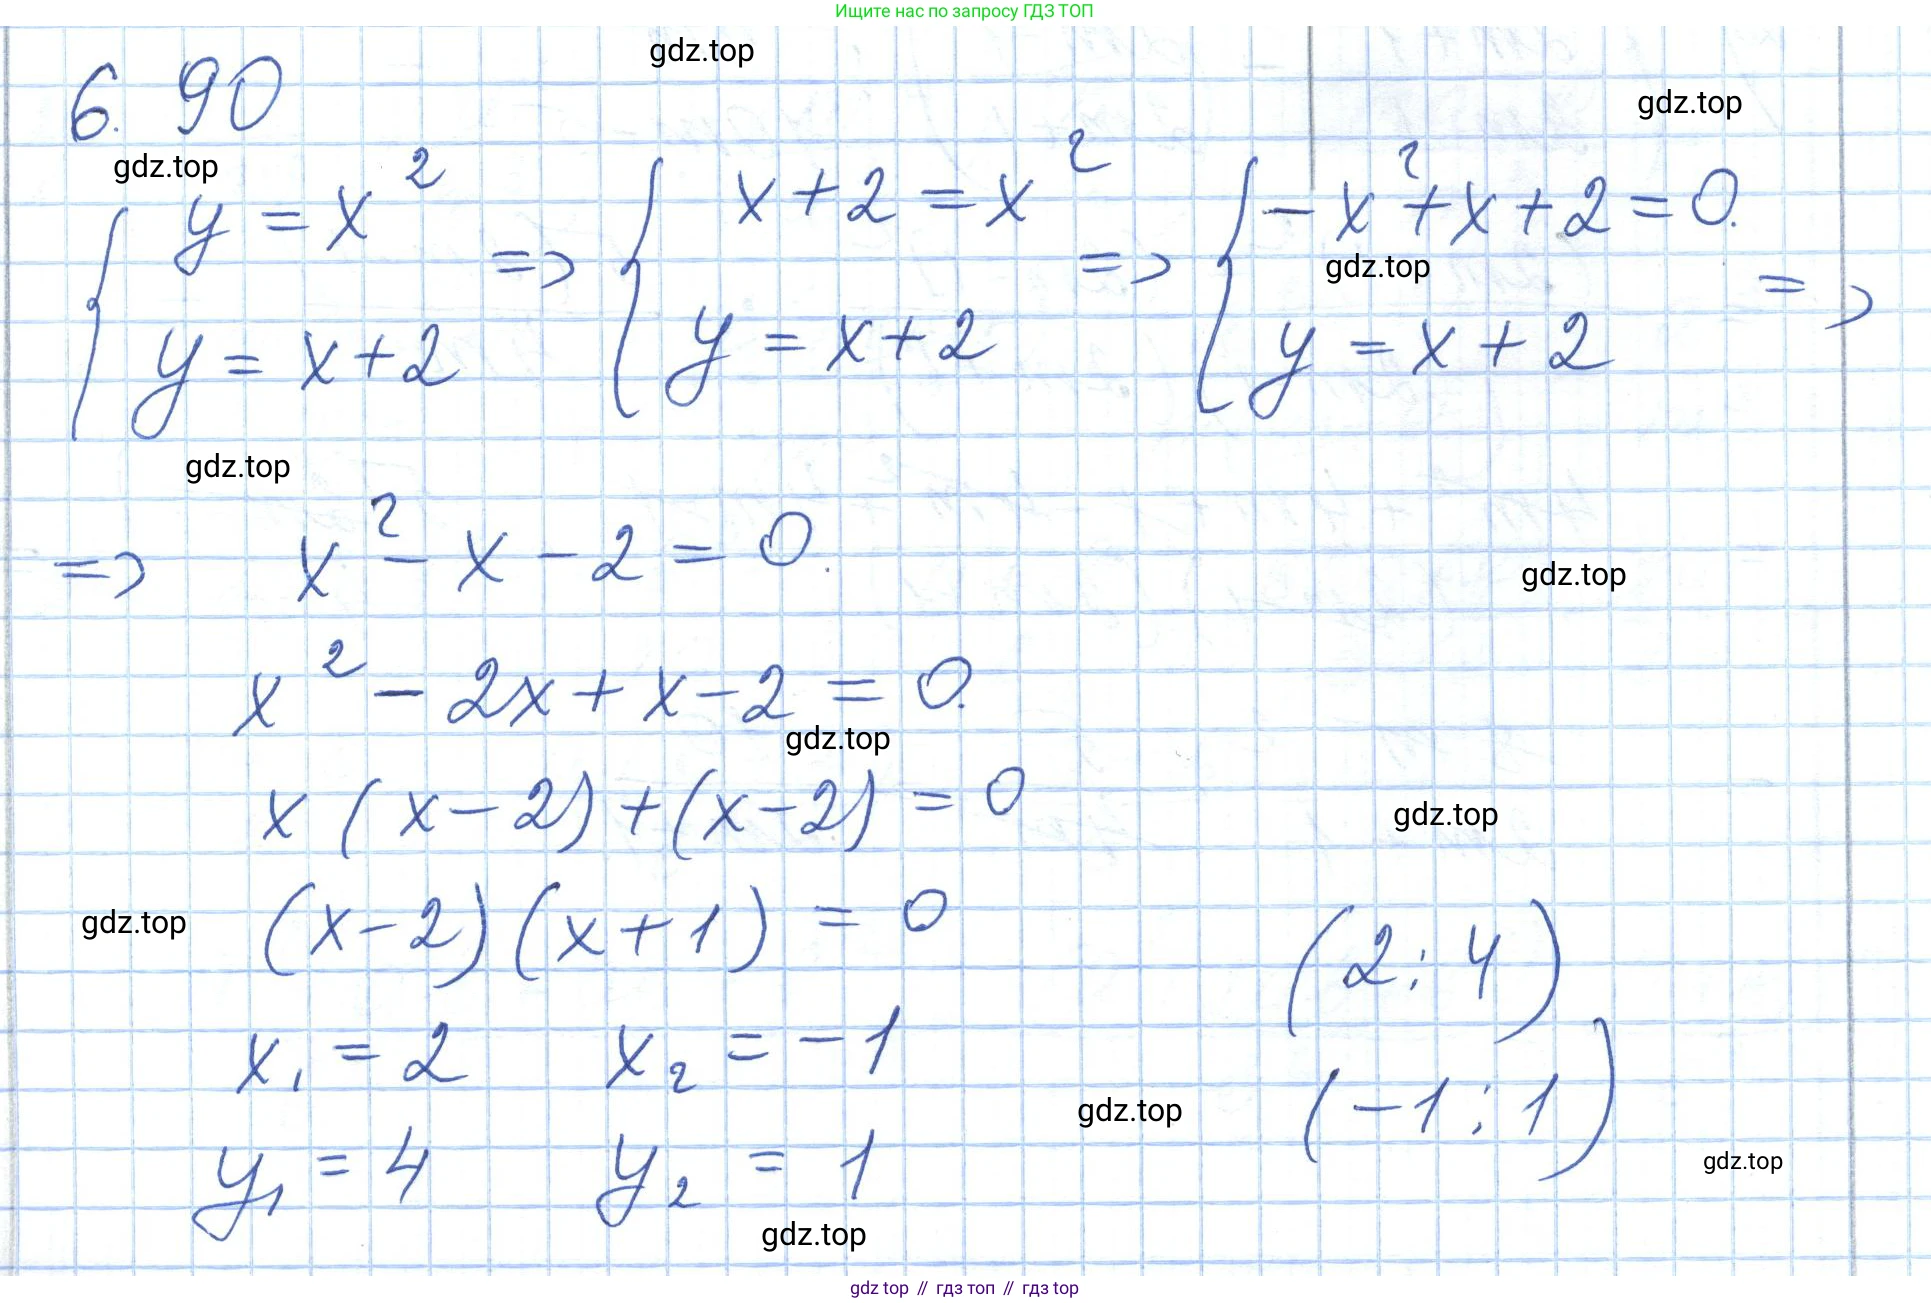 Ищите нас по запросу ГДЗ ТОП
gdz.top
6.90
gdz.top
gdz.top
{ y = x² => { x + 2 = x² => { -x² + x + 2 = 0. =>
gdz.top
y = x + 2 y = x + 2 y = x + 2
gdz.top
=> x² - x - 2 = 0.
gdz.top
x² - 2x + x - 2 = 0.
gdz.top
x (x - 2) + (x - 2) = 0
gdz.top
gdz.top
(x - 2)(x + 1) = 0
(2; 4)
x₁ = 2 x₂ = -1
gdz.top
(-1; 1)
y₁ = 4 y₂ = 1
gdz.top
gdz.top
gdz top // гдз топ // гдз top